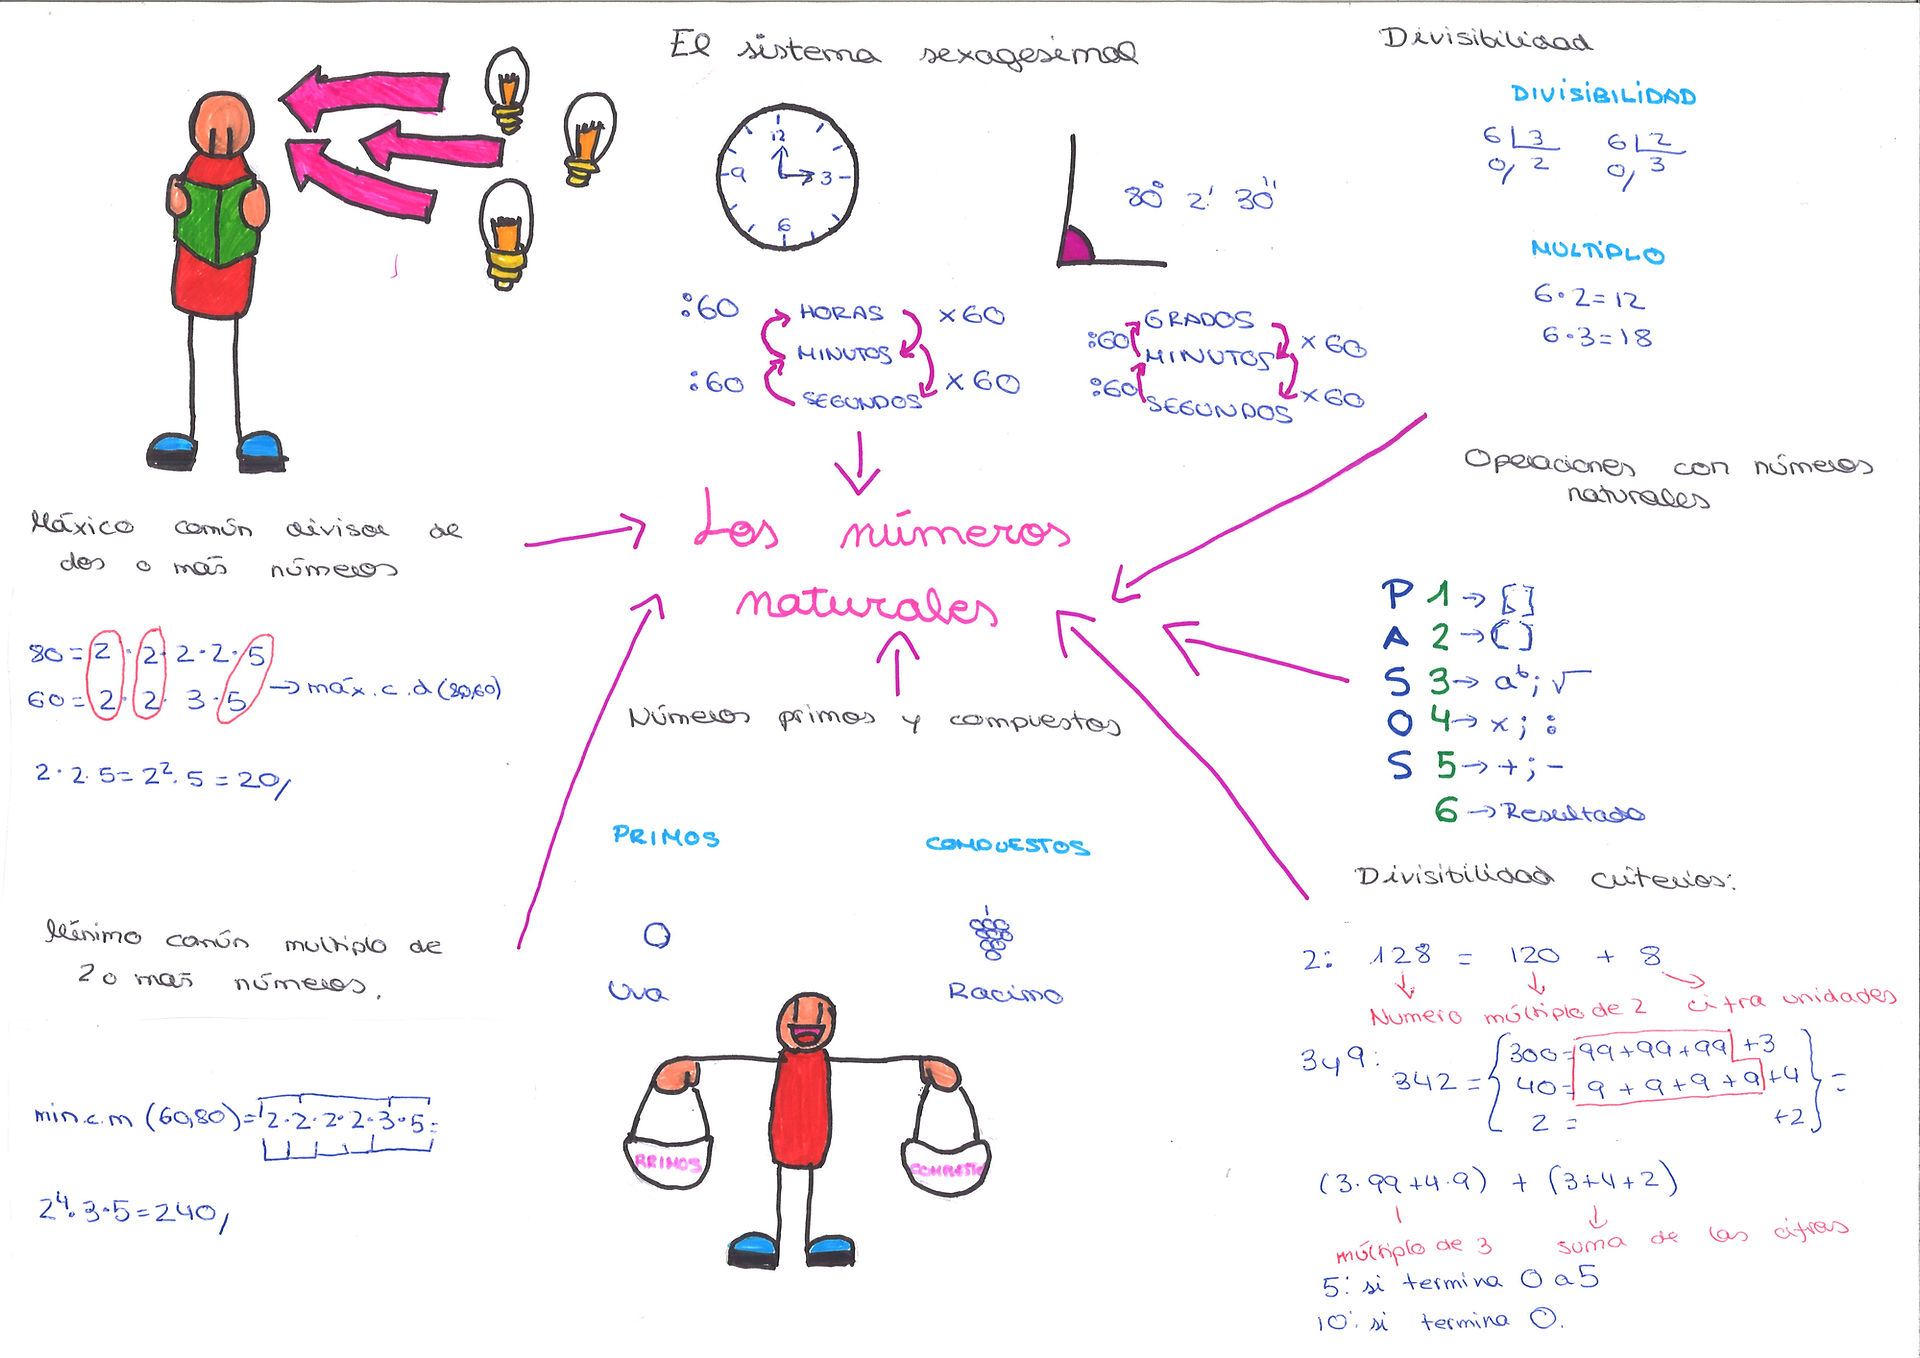 El sistema sexagesimal
12
9
3
6
80° 2' 30''
:60 HORAS x60
MINUTOS
:60 x60
SEGUNDOS
GRADOS
:60 x60
MINUTOS
:60 x60
SEGUNDOS
Divisibilidad
DIVISIBILIDAD
6 3
0, 2
6 2
0, 3
MULTIPLO
6·2=12
6·3=18
Los números
naturales
Máxico común divisor de
dos o más números
80=2·2·2·2·5
60=2·2·3·5
→ máx.c.d (80,60)
2·2·5=2²·5=20,
Operaciones con números
naturales
P 1→[]
A 2→()
S 3→ aᵇ; √
O 4→ x; :
S 5→ +; -
6→Resultado
Números primos y compuestos
PRIMOS
COMPUESTOS
Uva
Racimo
PRIMOS
COMPUESTO
Mínimo común multiplo de
2 o mas números.
min.c.m (60,80)=2·2·2·2·3·5=
2⁴·3·5=240,
Divisibilidad criterios:
2: 128 = 120 + 8
Numero múltiplo de 2 cifra unidades
3y9:
342 =
300=99+99+99+3
40=9+9+9+9+4
2= +2
=
(3·99+4·9) + (3+4+2)
múltiplo de 3 suma de las cifras
5: si termina 0 a 5
10: si termina 0.